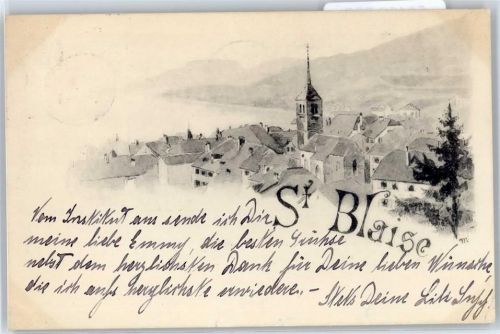 St Blaise
Vom Institut aus sende ich Dir
meine liebe Emmy, die besten Grüsse
nebst dem herzlichsten Dank für Deine lieben Wünsche,
die ich aufs herzlichste erwiedere. - Stets Deine